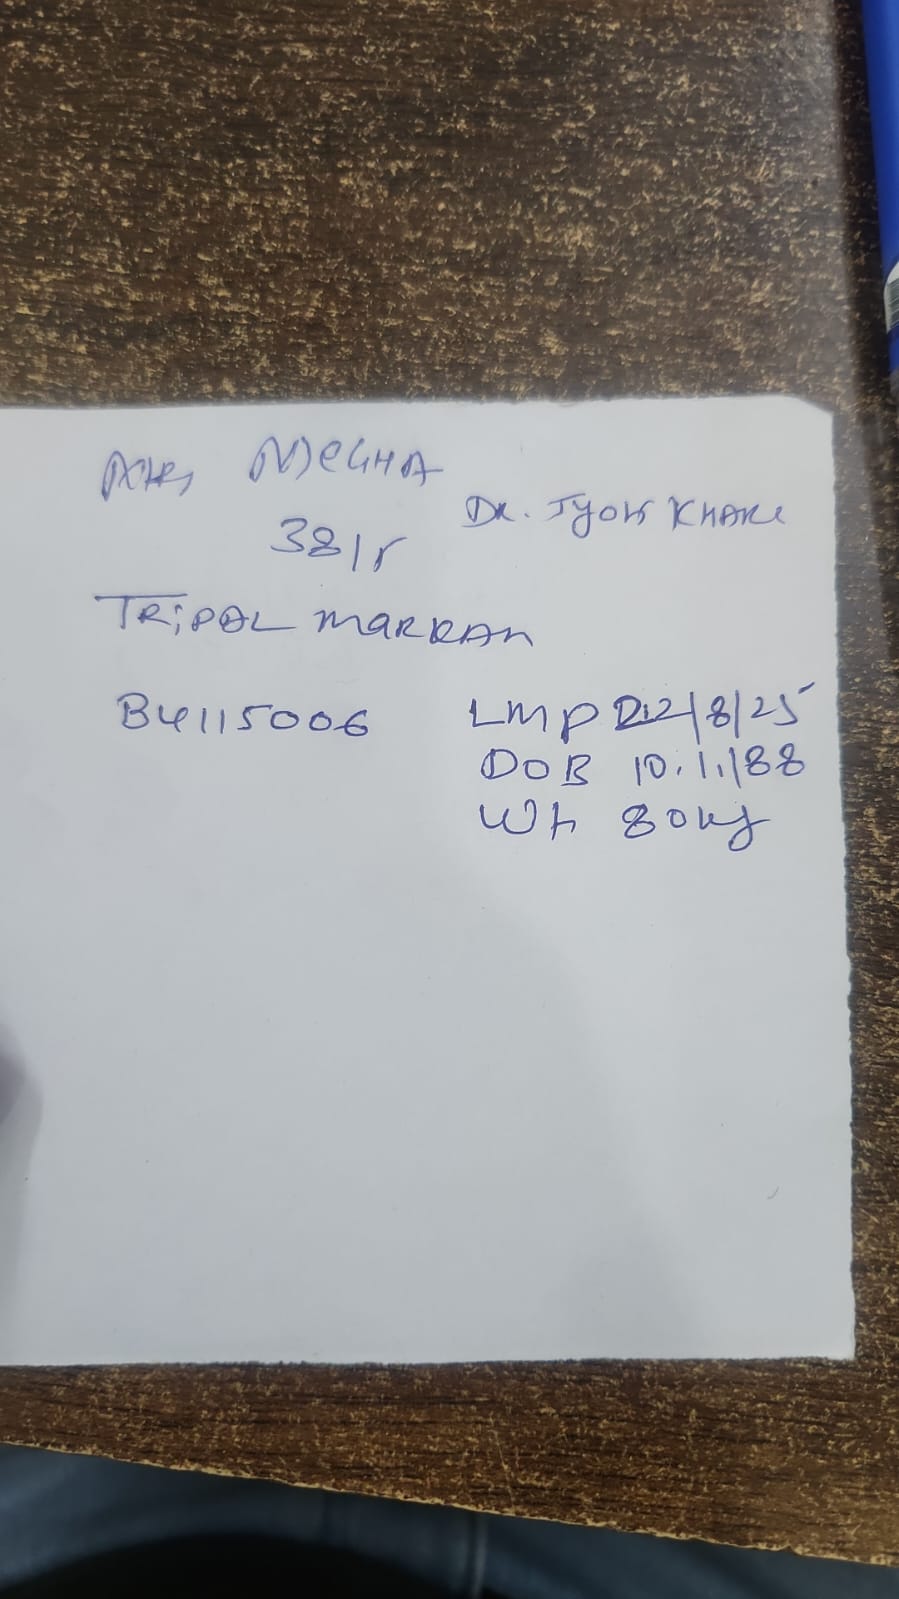 Mrs MEGHA
Dr. Jyoti KHARE
38/F
TRIPAL MARKAR
B4115006
LMP 22/8/25
DOB 10.1.88
Wt 80kg